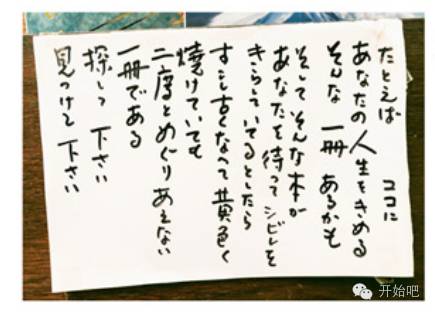 たとえば　ココに
あなたの人生をきめる
そんな　一冊　あるかも
そしてそんな本が
あなたを待って　シビレを
きらしているとしたら
すこし古くなって黄色く
焼けていても
二度とめぐりあえない
一冊である
探して　下さい
見つけて　下さい
开始吧